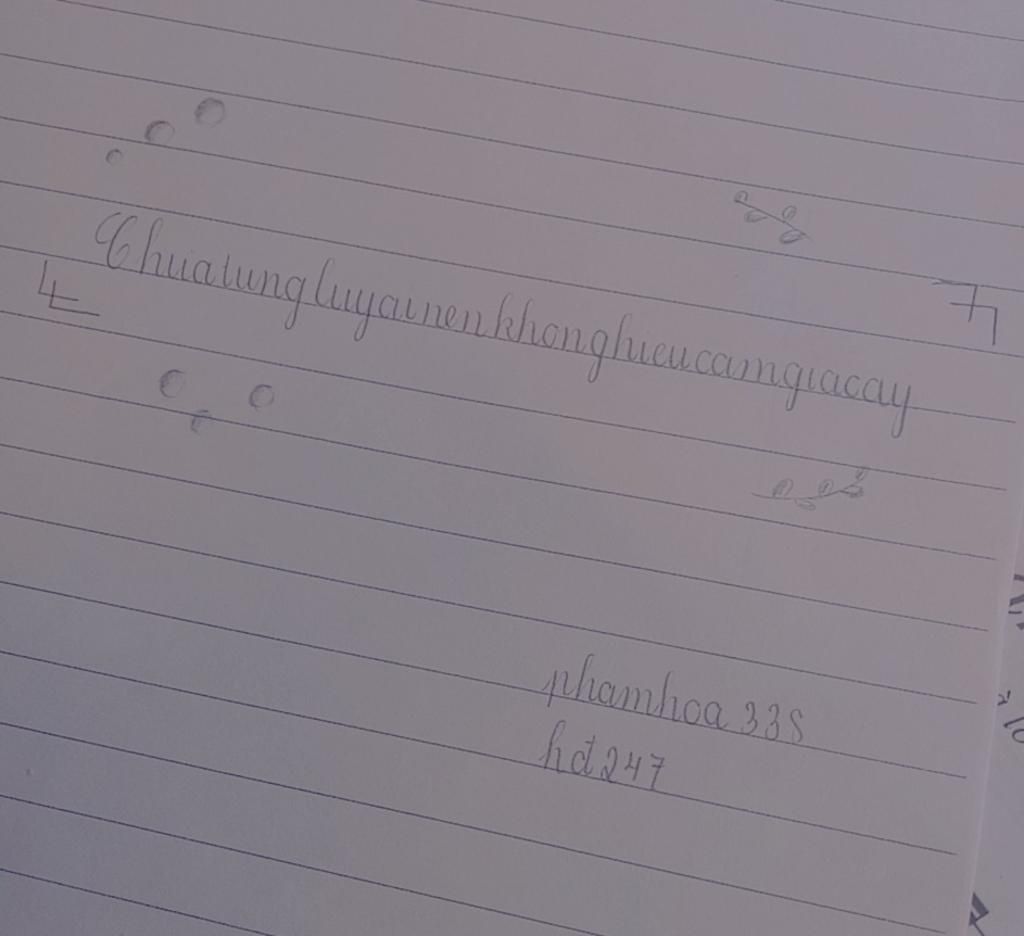 Chuatungluyainenkhonghieucamgiacay
phamhoa 338
hđ247